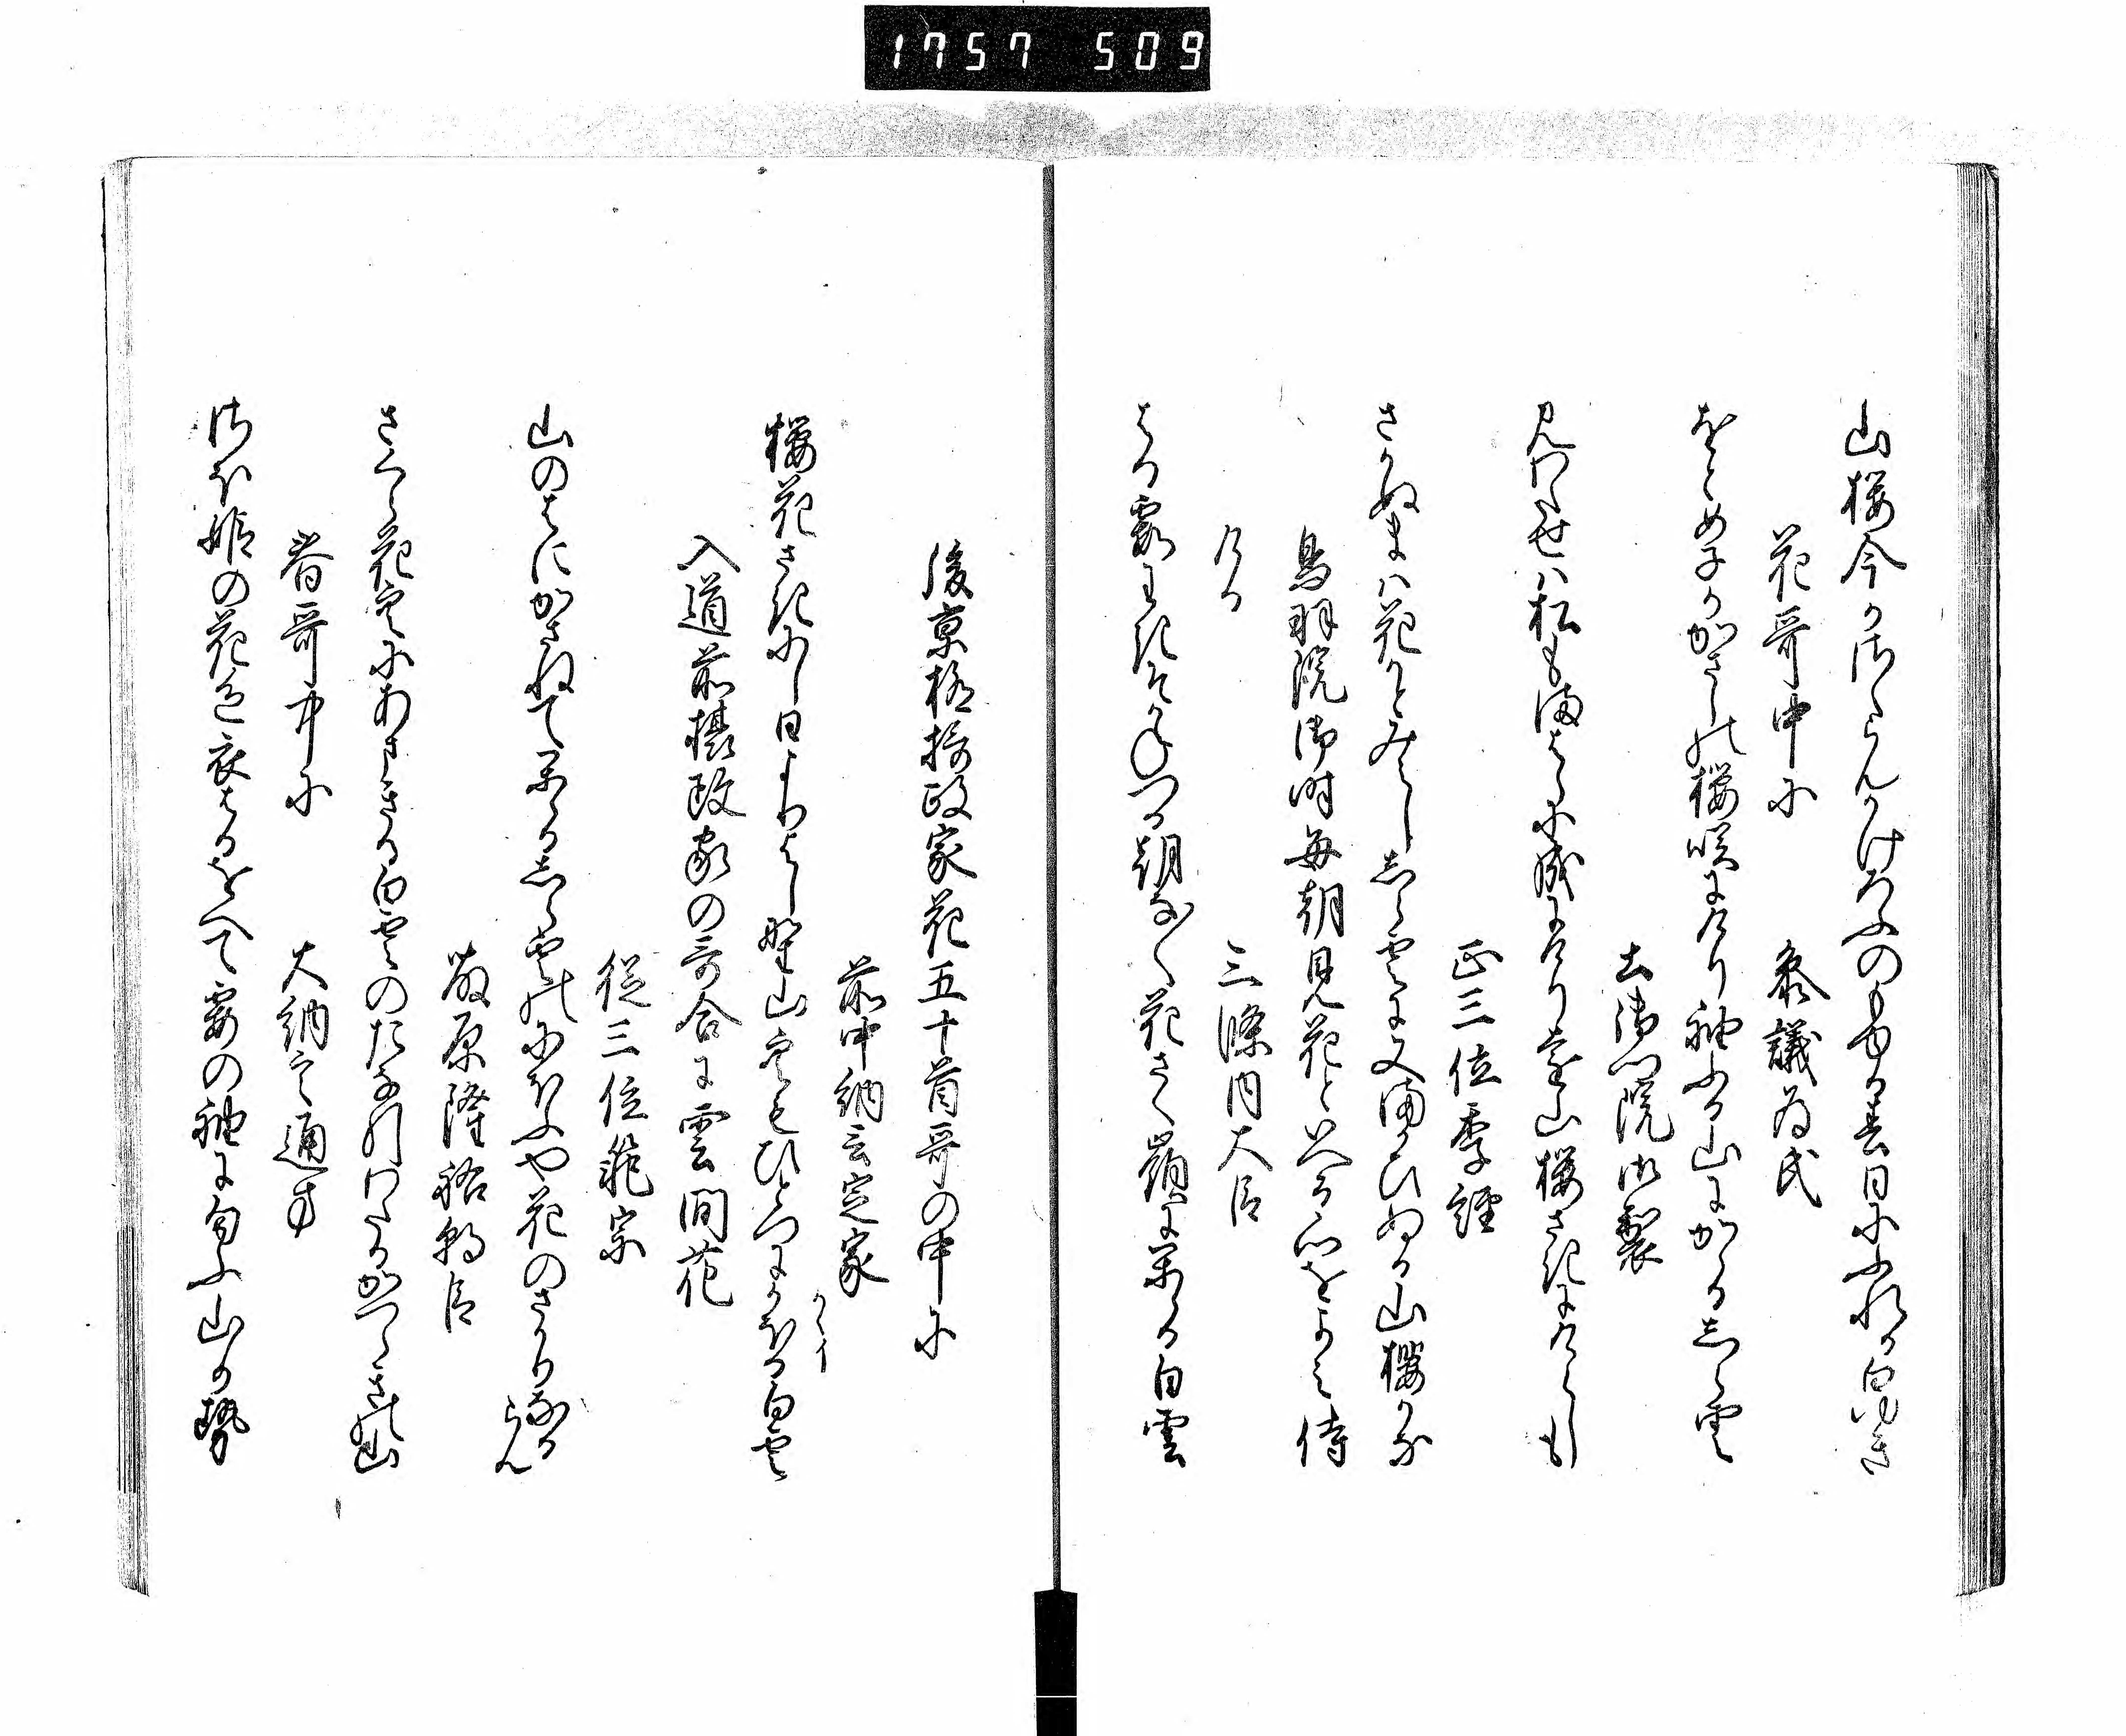 1757 509
山桜今かさくらんかけろふのもゆる春日にふれる白ゆき
花哥中に 参議為氏
おとめ子かかさしの桜咲にけり袖ふる山にかゝるしら雲
土御門院御製
見わたせは松もまはらに成にけりとを山桜さきにけらしも
正三位季経
さかぬまは花かとみえししら雲に又まかひぬる山桜かな
鳥羽院御時毎朝見花といへる心をよみ侍
ける 三條内大臣
はる霞
朝なく花さく嶺にかゝる白雲
後京極摂政家花五十首哥の中に
前中納言定家
桜花さきにし日よりよし野山空もひとつにかほる白雲
かゝるイ
入道前摂政家の哥合に雲間花
従三位範宗
山のはにかさねてかゝるしら雲のにほふや花のさかりなるらん
藤原隆祐朝臣
さくら花空にあまきる白雲のたな引わたるかつらきの山
春哥中に 大納言通方
さほ姫の花色衣はるをへて霞の袖に匂ふ山か勢